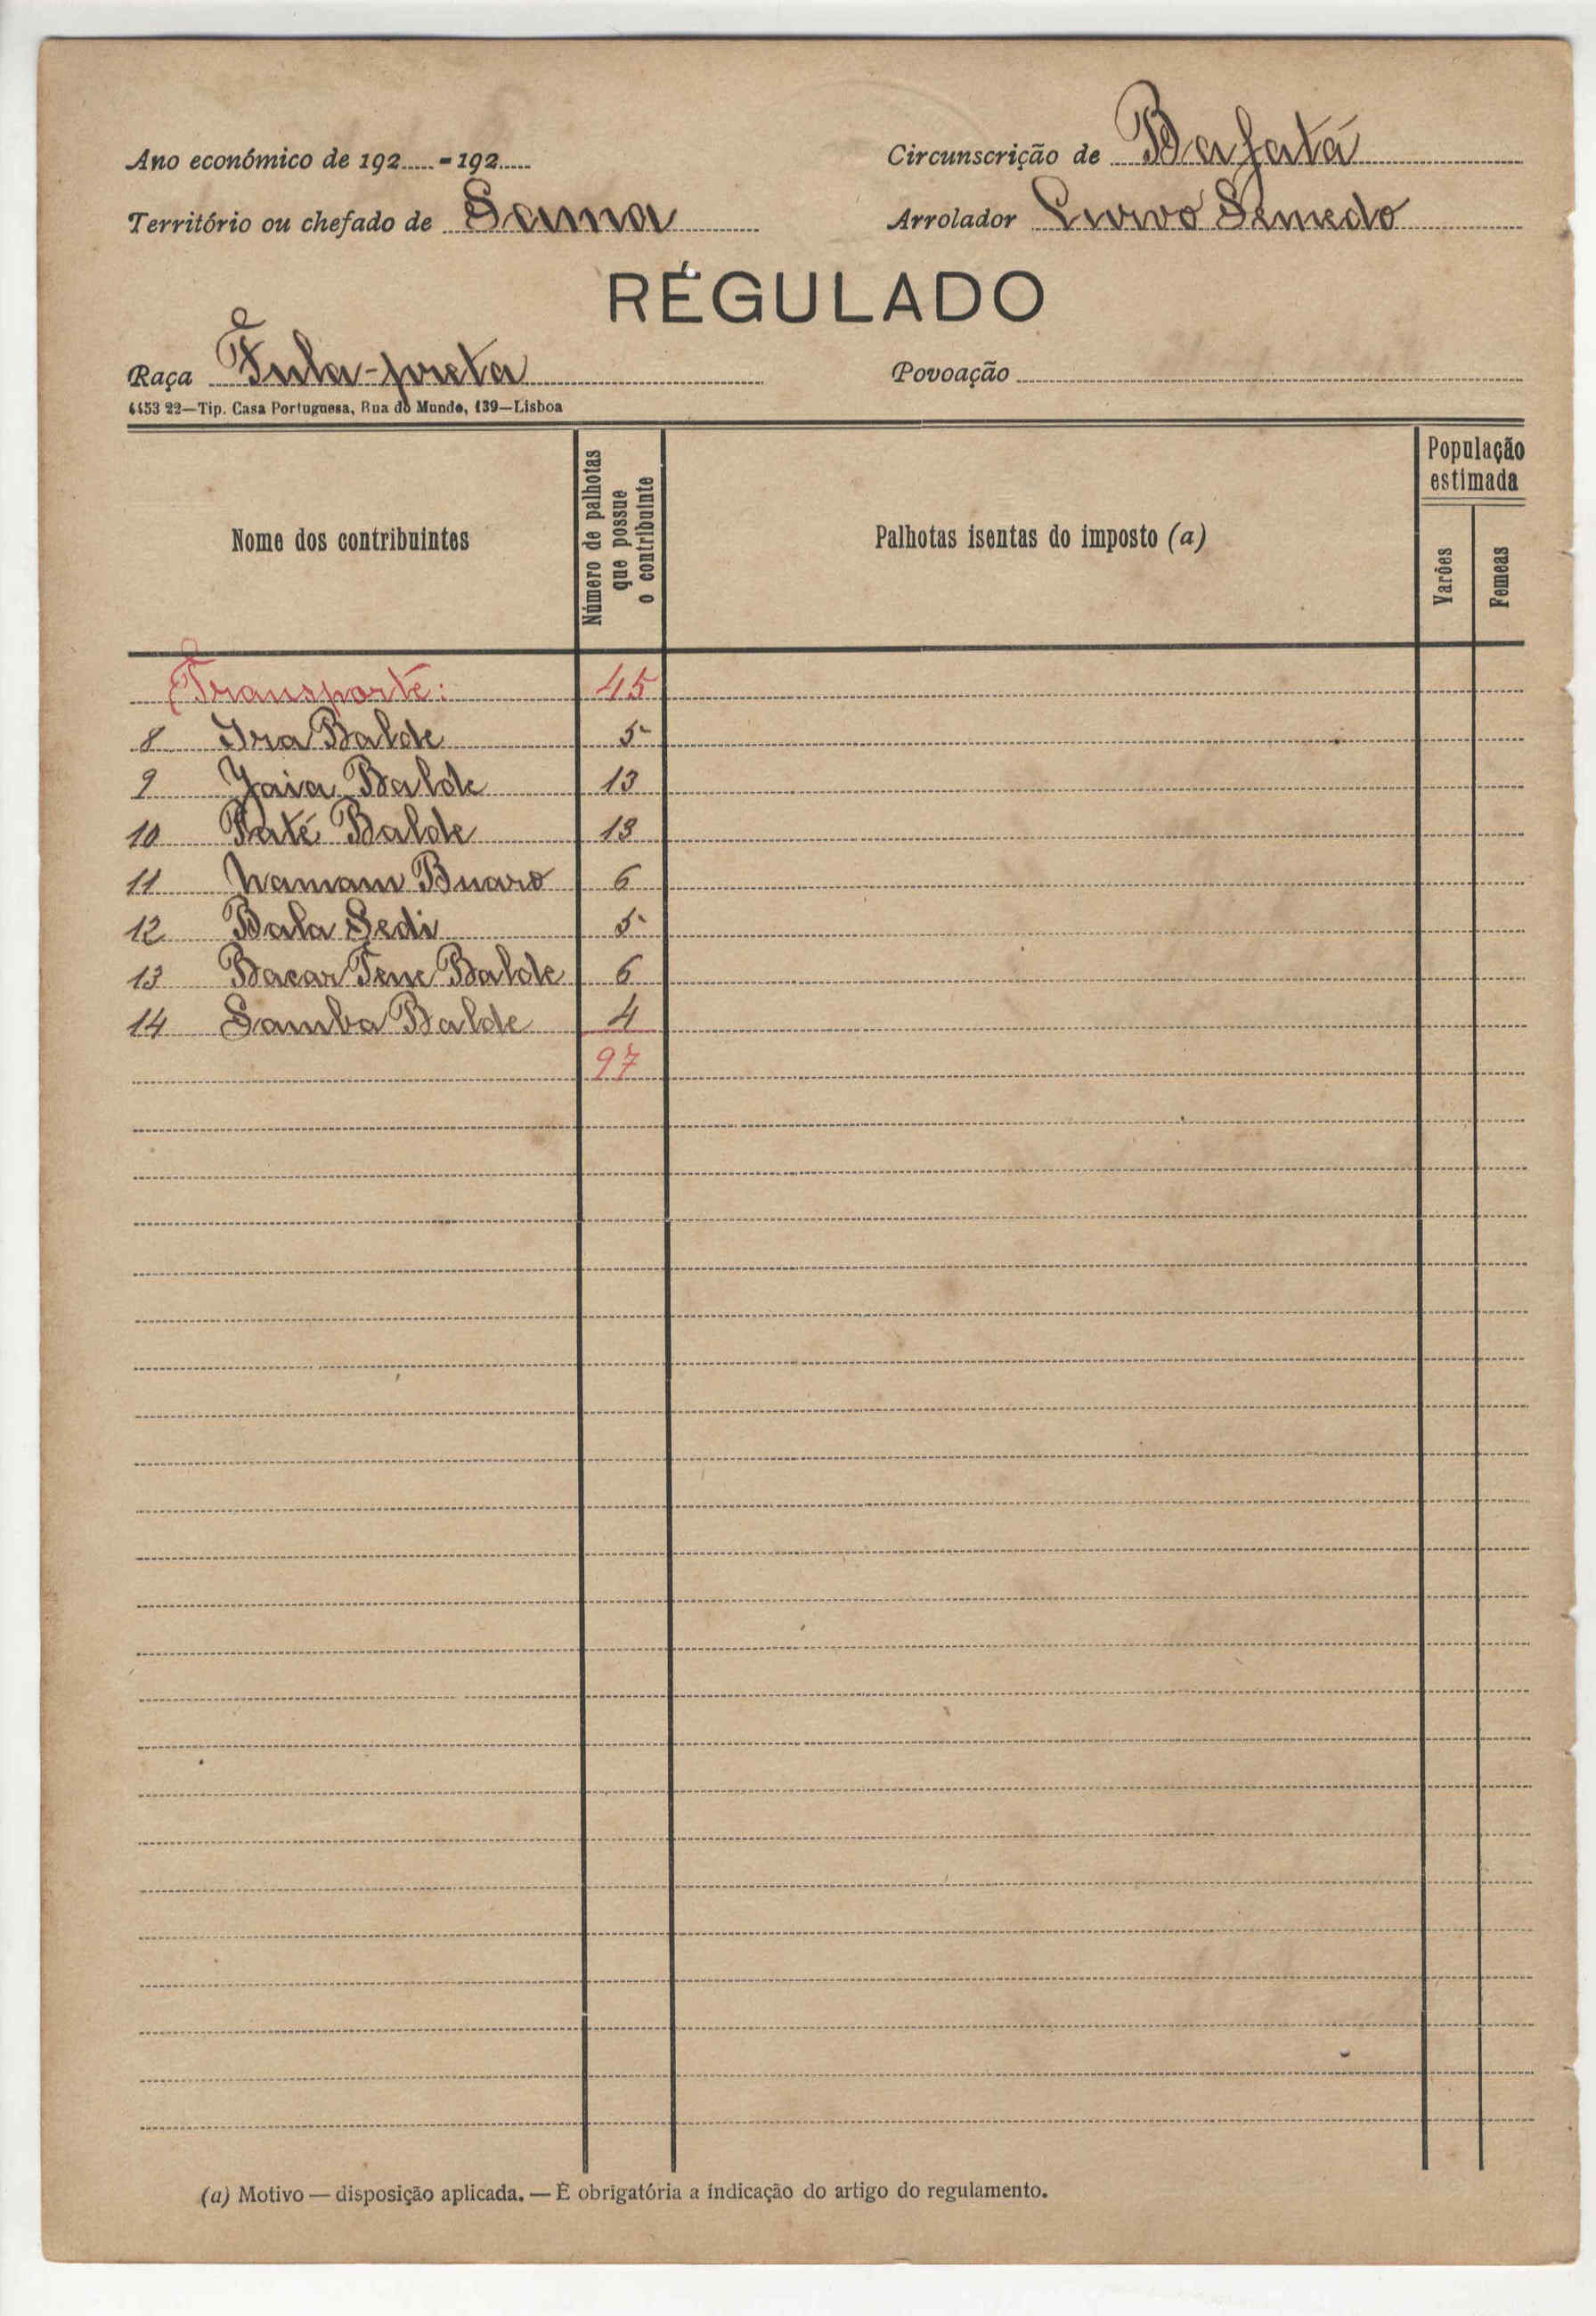 Ano económico de 192..... - 192.....
Circunscrição de Bafatá
Território ou chefado de Sama
Arrolador Livivo Semedo
RÉGULADO
Raça Fula-preta
Povoação
4453 22—Tip. Casa Portuguesa, Rua do Mundo, 139—Lisboa
Nome dos contribuintes
Número de palhotas que possue o contribuinte
Palhotas isentas do imposto (a)
População estimada
Varões
Femeas
Transporte: 45
8 Ira Balde 5
9 Jaia Balde 13
10 Paté Balde 13
11 Mamam Buaro 6
12 Bala Sedi 5
13 Bacar Tene Balde 6
14 Samba Balde 4
97
(a) Motivo — disposição aplicada. — É obrigatória a indicação do artigo do regulamento.